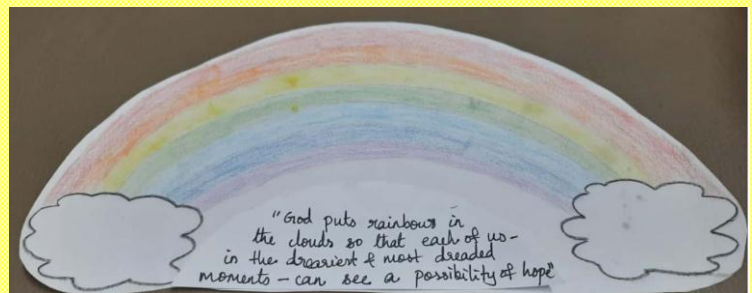 "God puts rainbows in
the clouds so that each of us -
in the dreariest & most dreaded
moments - can see a possibility of hope"